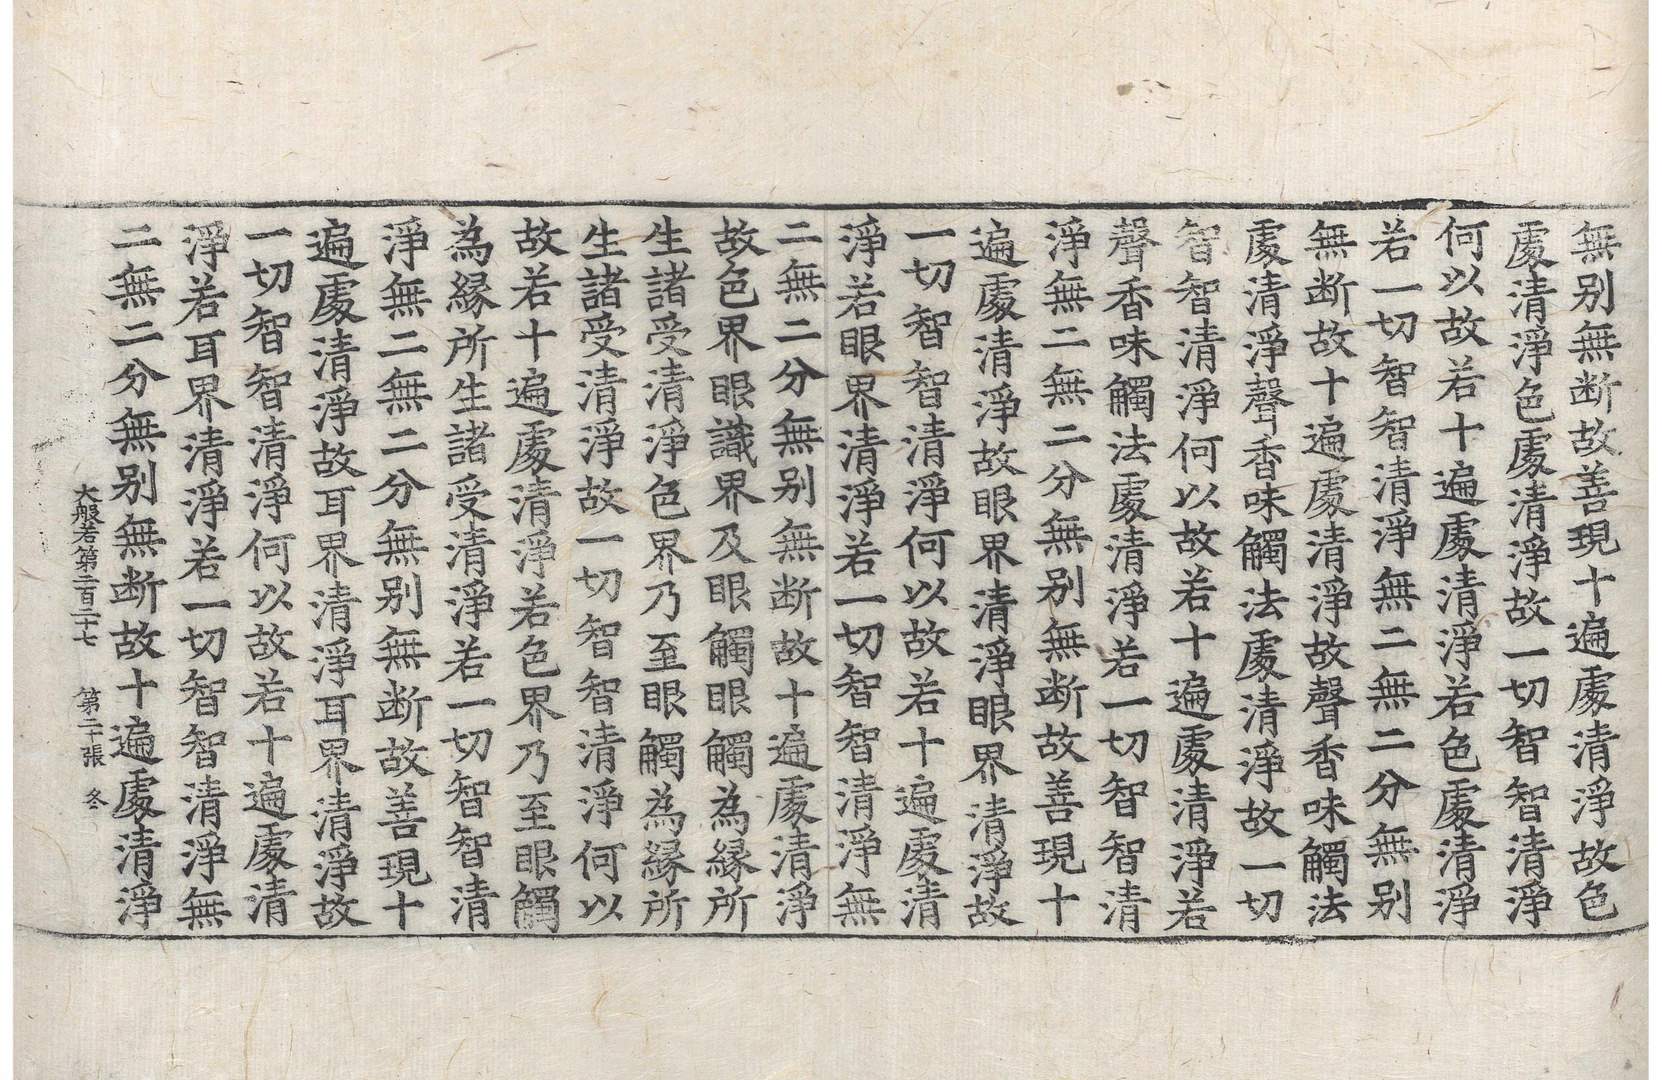 無别無断故善現十遍處清淨故色
處清淨色處清淨故一切智智清淨
何以故若十遍處清淨若色處清淨
若一切智智清淨無二無二分無别
無断故十遍處清淨故聲香味觸法
處清淨聲香味觸法處清淨故一切
智智清淨何以故若十遍處清淨若
聲香味觸法處清淨若一切智智清
淨無二無二分無别無断故善現十
遍處清淨故眼界清淨眼界清淨故
一切智智清淨何以故若十遍處清
淨若眼界清淨若一切智智清淨無
二無二分無别無断故十遍處清淨
故色界眼識界及眼觸眼觸為緣所
生諸受清淨色界乃至眼觸為緣所
生諸受清淨故一切智智清淨何以
故若十遍處清淨若色界乃至眼觸
為緣所生諸受清淨若一切智智清
淨無二無二分無别無断故善現十
遍處清淨故耳界清淨耳界清淨故
一切智智清淨何以故若十遍處清
淨若耳界清淨若一切智智清淨無
二無二分無别無断故十遍處清淨
大般若第二百二十七 第二十張 冬